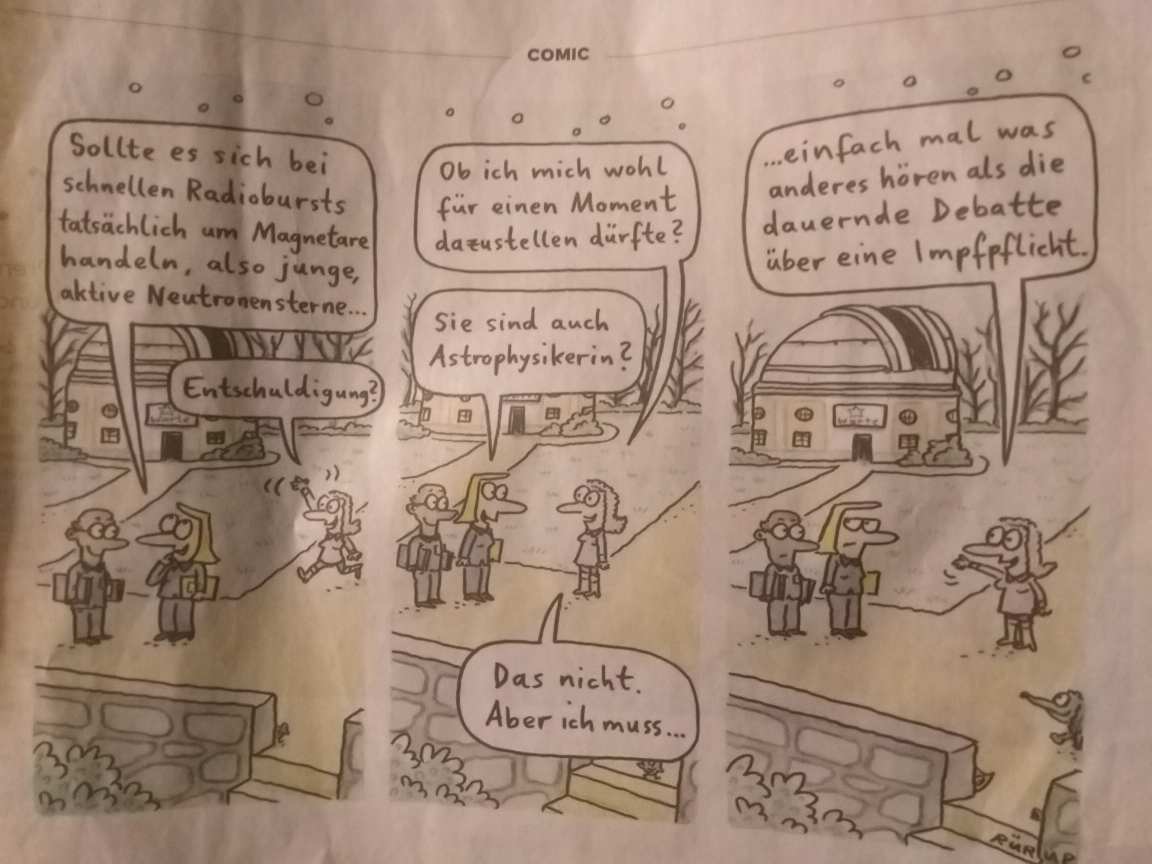 COMIC
Sollte es sich bei
schnellen Radiobursts
tatsächlich um Magnetare
handeln, also junge,
aktive Neutronensterne...
Entschuldigung?
Ob ich mich wohl
für einen Moment
dazustellen dürfte?
Sie sind auch
Astrophysikerin?
Das nicht.
Aber ich muss...
...einfach mal was
anderes hören als die
dauernde Debatte
über eine Impfpflicht.
Warte
Warte